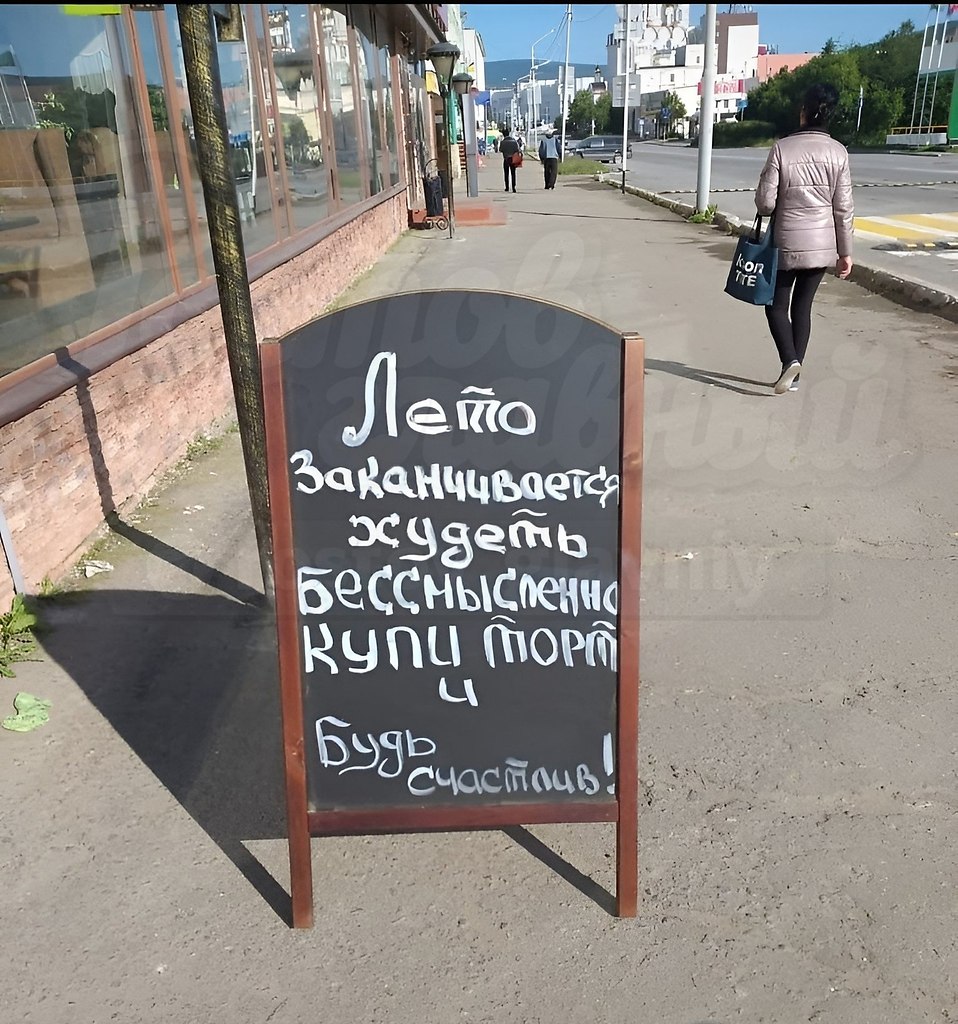 Лето
Заканчивается
худеть
бессмысленно
купи торт
и
Будь
счастлив!